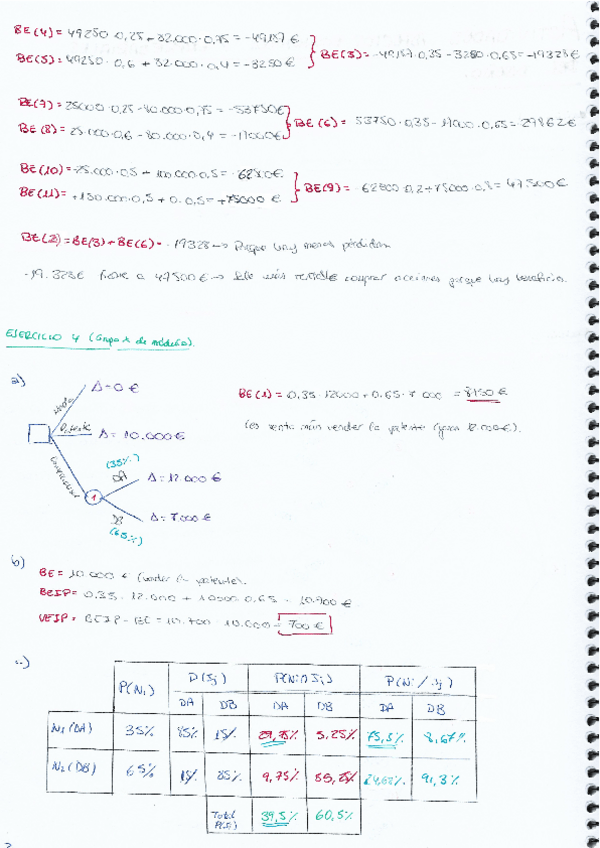 BE(4) = 49250 · 0,25 + 82.000 · 0,75 = -49187 €
BE(5) = 49250 · 0,6 + 82.000 · 0,4 = -3250 €
BE(3) = -49187 · 0,35 - 3250 · 0,65 = -19328 €
BE(7) = 25000 · 0,25 - 80.000 · 0,75 = -53750 €
BE(8) = 25.000 · 0,6 - 80.000 · 0,4 = -17000 €
BE(6) = 53750 · 0,35 - 17000 · 0,65 = 29862 €
BE(10) = -25.000 · 0,5 + 100.000 · 0,5 = -62500 €
BE(11) = +150.000 · 0,5 + 0 · 0,5 = +75000 €
BE(9) = -62500 · 0,2 + 75000 · 0,8 = 47.500 €
BE(2) = BE(3) + BE(6) = -19328 → Porque hay menos pérdidas.
-19.328€ frente a 47500 € → Sale más rentable comprar acciones porque hay beneficio.
EJERCICIO 4 (Grupo A de módulo).
a)
Δ = 0 €
Δ = 10.000 €
(35%)
DA
Δ = 12.000 €
1
DB
(65%)
Δ = 7.000 €
BE(1) = 0,35 · 12000 + 0,65 · 7 000 = 8750 €
más vender la patente
b)
BE = 10 000 € (vender la patente).
BEIP = 0,35 · 12.000 + 10000 · 0,65 = 10.700 €
VEIP = BEIP - BE = 10.700 - 10.000 = 700 €
c)
P(Ni) P(Sj) P(Ni∩Sj) P(Ni/Sj)
DA DB DA DB DA DB
N1 (DA) 35% 85% 15% 29,75% 5,25% 75,3% 8,67%
N2 (DB) 65% 15% 85% 9,75% 55,25% 24,68% 91,3%
Total P(Sj) 39,5% 60,5%